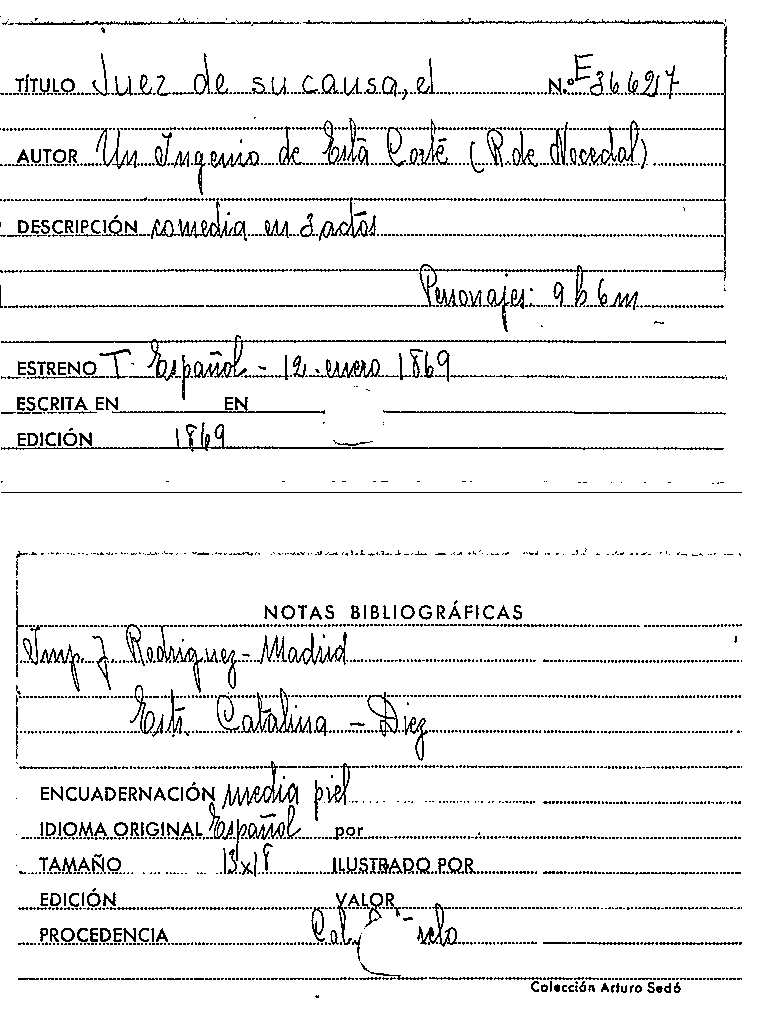 TÍTULO Juez de su causa, el N.º E 36627
AUTOR Un Ingenio de Esta Corte (R. de Nocedal)
DESCRIPCIÓN comedia en 3 actos
Personajes: 9 h 6 m
ESTRENO T. Español - 12 enero 1869
ESCRITA EN EN
EDICIÓN 1869
NOTAS BIBLIOGRÁFICAS
Imp. J. Rodriguez - Madrid
Estr. Catalina - Diez
ENCUADERNACIÓN media piel
IDIOMA ORIGINAL Español por
TAMAÑO 13x18 ILUSTRADO POR
EDICIÓN VALOR
PROCEDENCIA
Colección Arturo Sedó